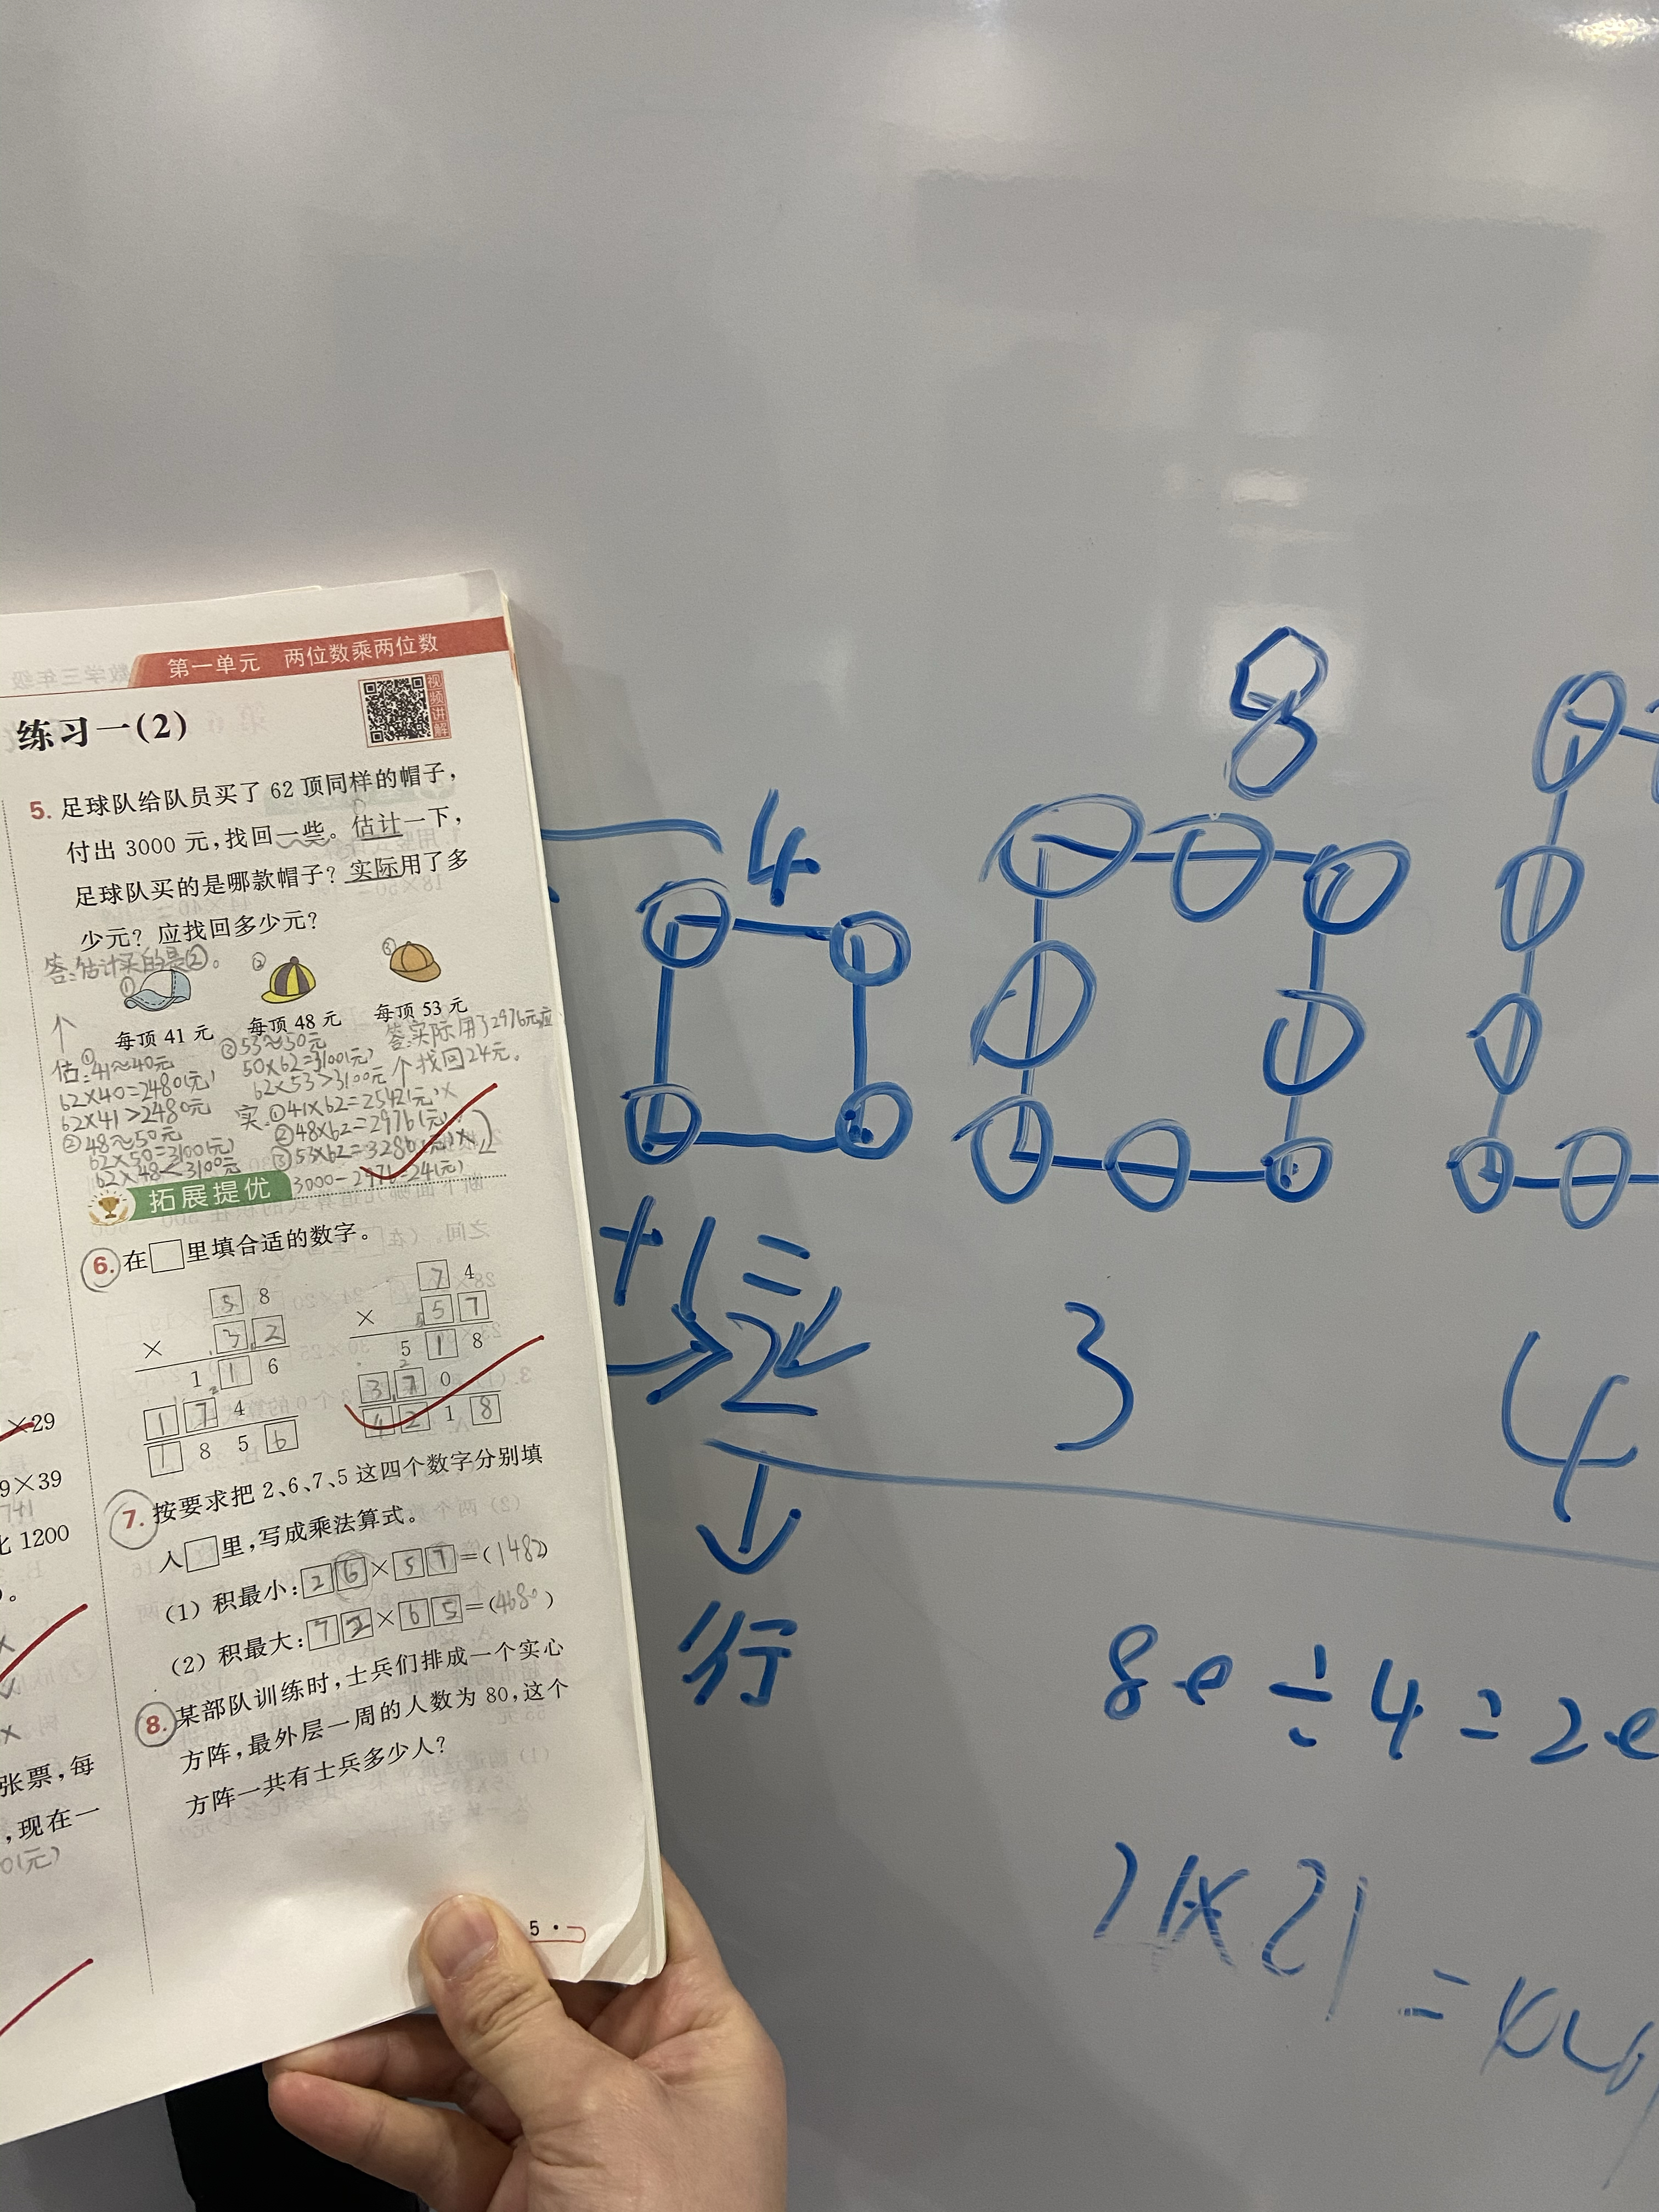 第一单元 两位数乘两位数
视频讲解
练习一(2)
5. 足球队给队员买了 62 顶同样的帽子,
付出 3000 元,找回一些。估计一下,
足球队买的是哪款帽子?实际用了多
少元?应找回多少元?
答:估计买的是②。
① ② ③
每顶 41 元 每顶 48 元 每顶 53 元
估:①41≈40元
62×40=2480(元)
62×41>2480元
②48≈50元
62×50=3100(元)
62×48<3100元
③53≈50元
50×62=3100(元)
62×53>3100元
答:实际用了2976元,应
个找回24元。
实:①41×62=2542(元)×
②48×62=2976(元)
拓展提优
6. 在□里填合适的数字。
5 8
× 3 2
1 1 6
1 7 4
1 8 5 6
7 4
× 5 7
5 1 8
3 7 0
4 2 1 8
7. 按要求把 2、6、7、5 这四个数字分别填
人□里,写成乘法算式。
(1) 积最小:26×57=(1482)
(2) 积最大:72×65=(4680)
8. 某部队训练时,士兵们排成一个实心
方阵,最外层一周的人数为 80,这个
方阵一共有士兵多少人?
5
×29
9×39
741
比 1200
张票,每
,现在一
0(元)
4
8
+1=
2
3
4
行
80÷4=20
21×21